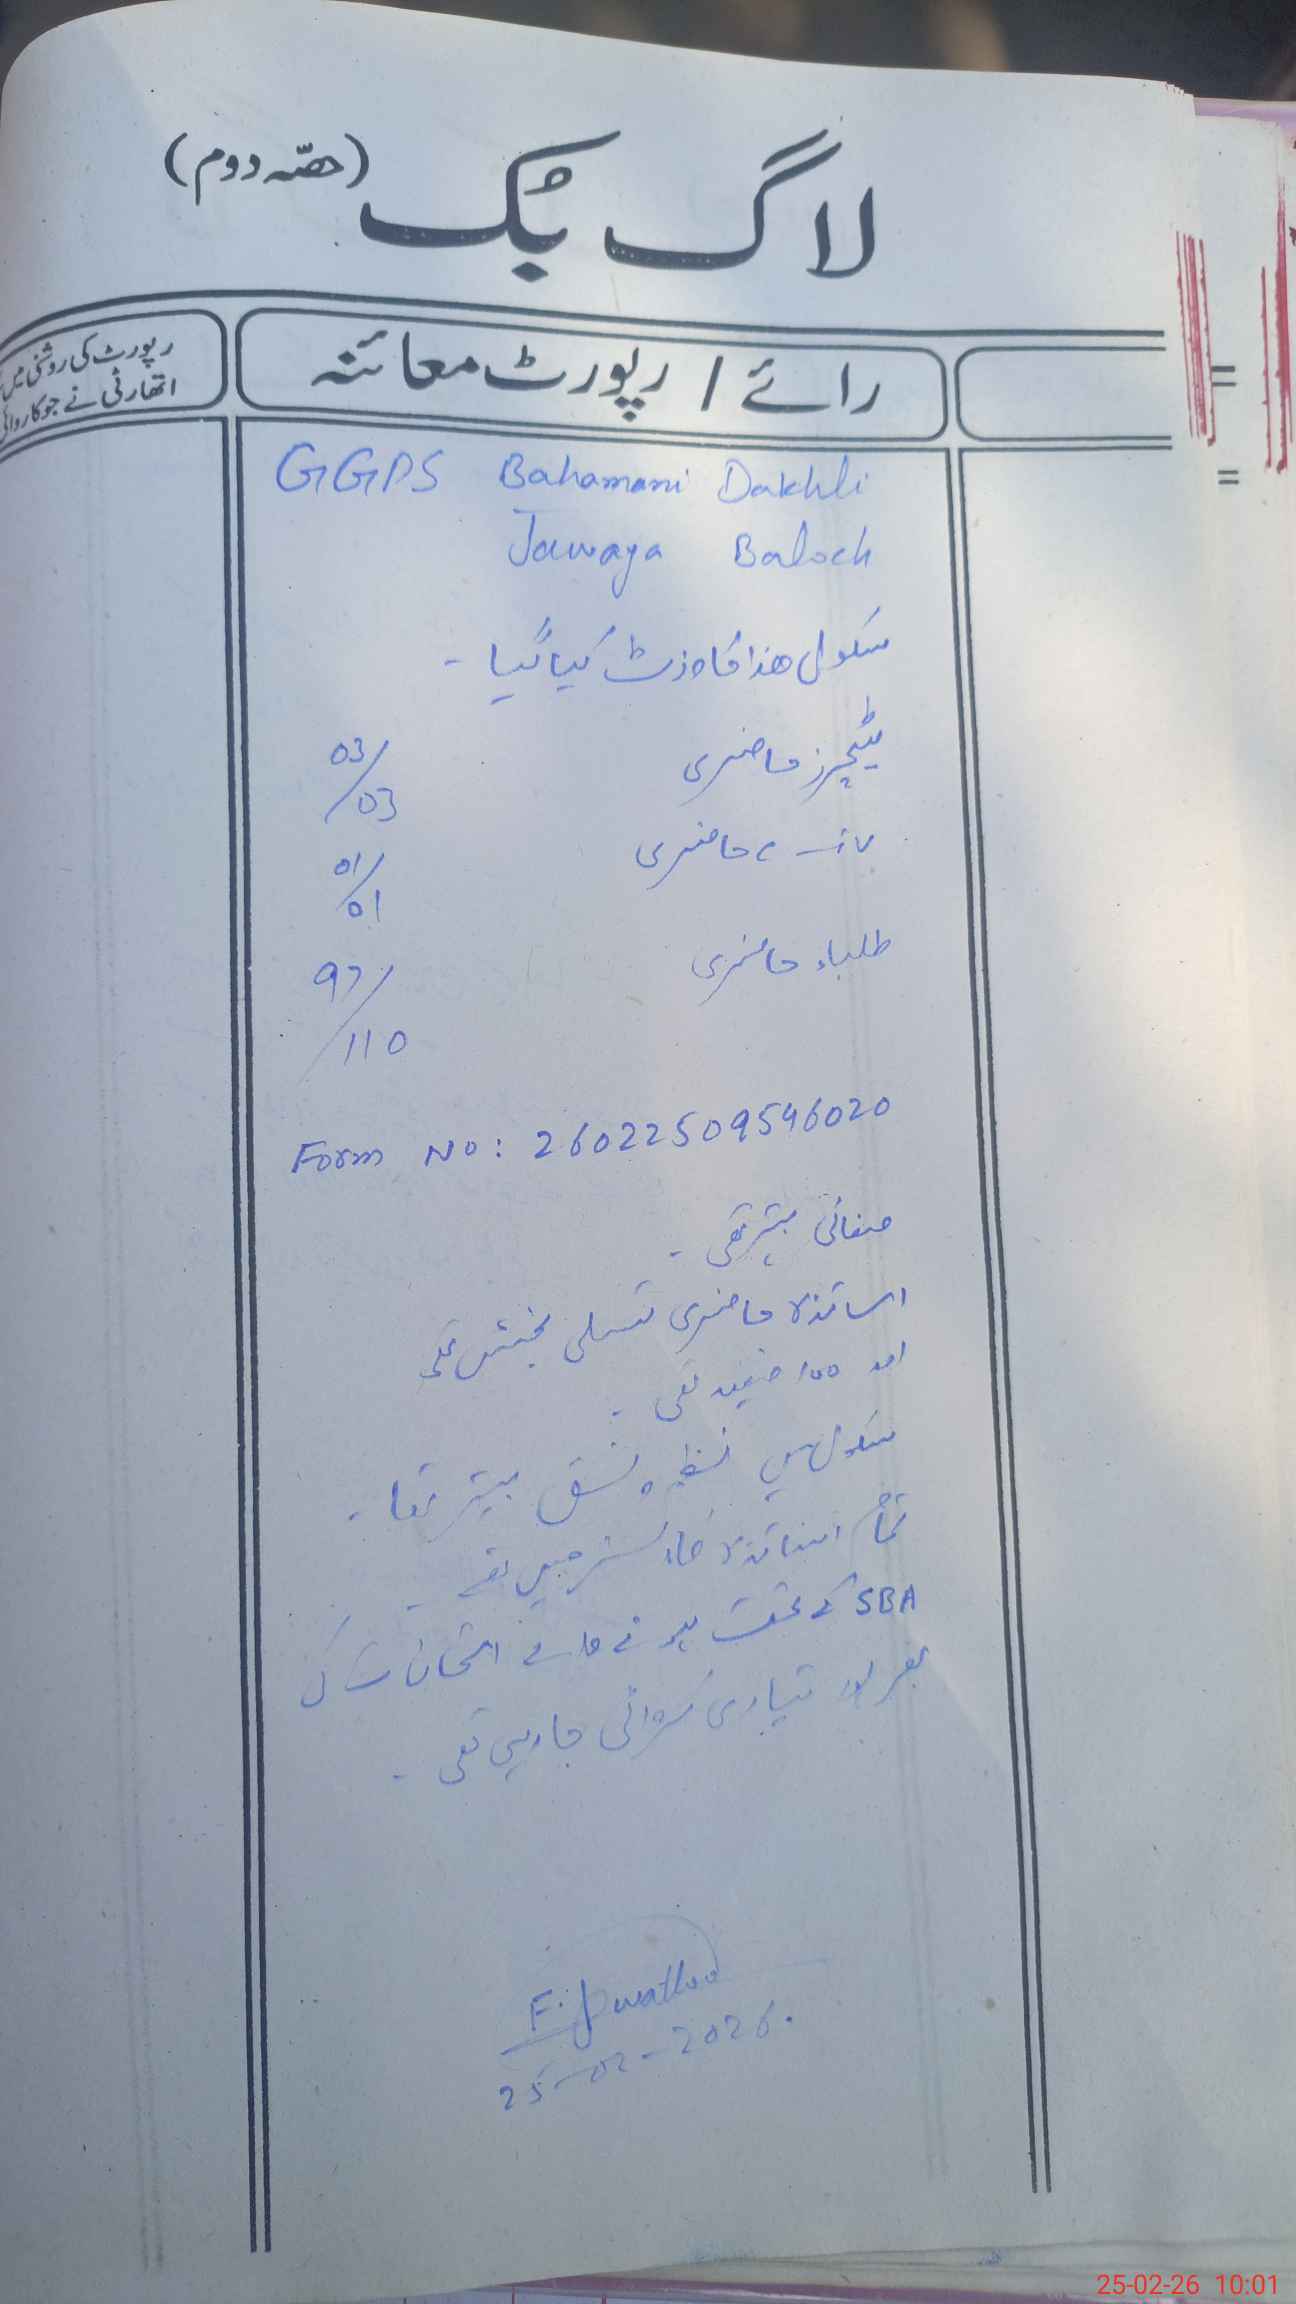 لاگ بک (حصّہ دوم)
رائے / رپورٹ معائنہ
رپورٹ کی روشنی میں
اتھارٹی نے جو کاروائی
GGPS Bahamani Dakhli
Jawaya Baloch
سکول ھذا کا وزٹ کیا گیا -
ٹیچرز حاضری 03/03
حاضری 01/01
طلباء حاضری 97/110
Form No: 26022509546020
صفائی بہتر تھی -
اساتذہ حاضری تسلی بخش تھی
اور 100 فیصد تھی -
سکول میں نظم و نسق بہتر تھا -
تمام اساتذہ کلاسز میں تھے -
SBA کے تحت ہونے والے امتحانات کی
بھرپور تیاری کروائی جا رہی تھی -
25-02-2026.
25-02-26 10:01